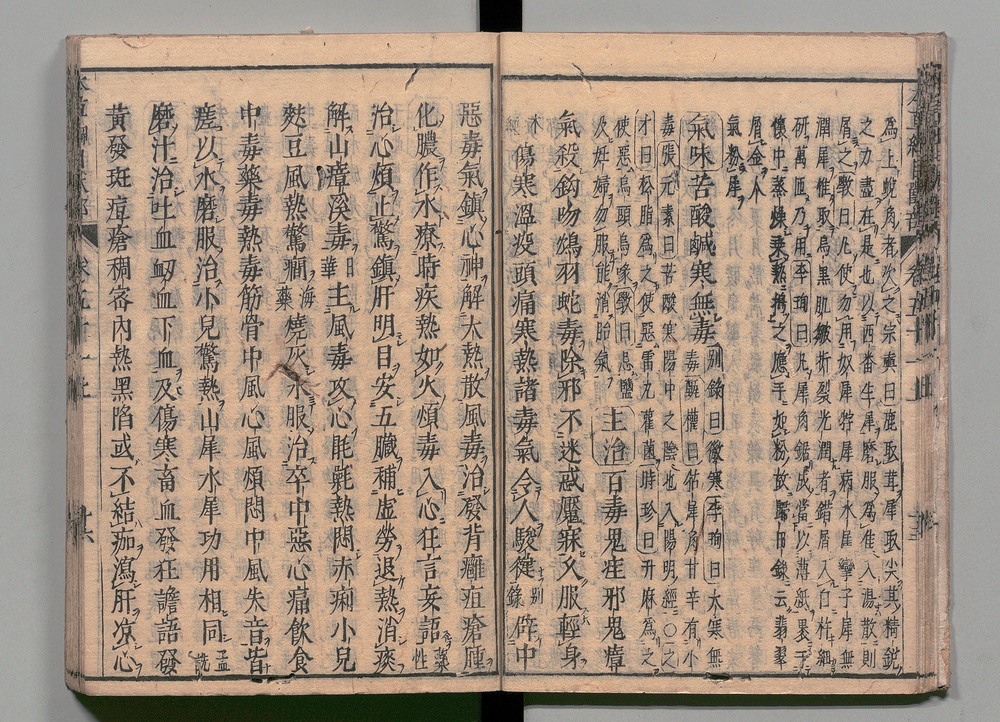 爲上蛇角者次之宗奭曰鹿取茸犀取尖其精銳
之力盡在是也以西番生犀磨服爲佳入湯散則
屑之斆曰凡使勿用奴犀牸犀病水犀攣子犀無
潤犀惟取烏黑肌皺坼裂光潤者錯屑入臼杵細
研萬匝乃用李珣曰凡犀角鋸成當以薄紙裹于
懷中蒸燥乘熱擣之應手如粉故歸田錄云翡翠
屑金人
氣粉犀
氣味苦酸鹹寒無毒別錄曰微寒李珣曰大寒無
毒甄權曰牯犀角甘辛有小
毒張元素曰苦酸寒陽中之陰也入陽明經○之
才曰松脂爲之使惡雷丸雚菌時珍曰升麻爲之
使惡烏頭烏喙斆曰忌鹽
及妊婦勿服能消胎氣
主治百毒鬼疰邪鬼瘴
氣殺鈎吻鴆羽蛇毒除邪不迷惑魘寐久服輕身
本
經
傷寒溫疫頭痛寒熱諸毒氣令人駿健別
錄
辟中
惡毒氣鎮心神解大熱散風毒治發背癰疽瘡腫
化膿作水療時疾熱如火煩毒入心狂言妄語藥
性
治心煩止驚鎮肝明目安五臟補虛勞退熱消痰
解山瘴溪毒日
華
主風毒攻心毷氉熱悶赤痢小兒
麩豆風熱驚癇海
藥
燒灰水服治卒中惡心痛飲食
中毒藥毒熱毒筋骨中風心風煩悶中風失音皆
瘥以水磨服治小兒驚熱山犀水犀功用相同孟
詵
磨汁治吐血衂血下血及傷寒畜血發狂譫語發
黃發斑痘瘡稠密內熱黑陷或不結痂瀉肝凉心